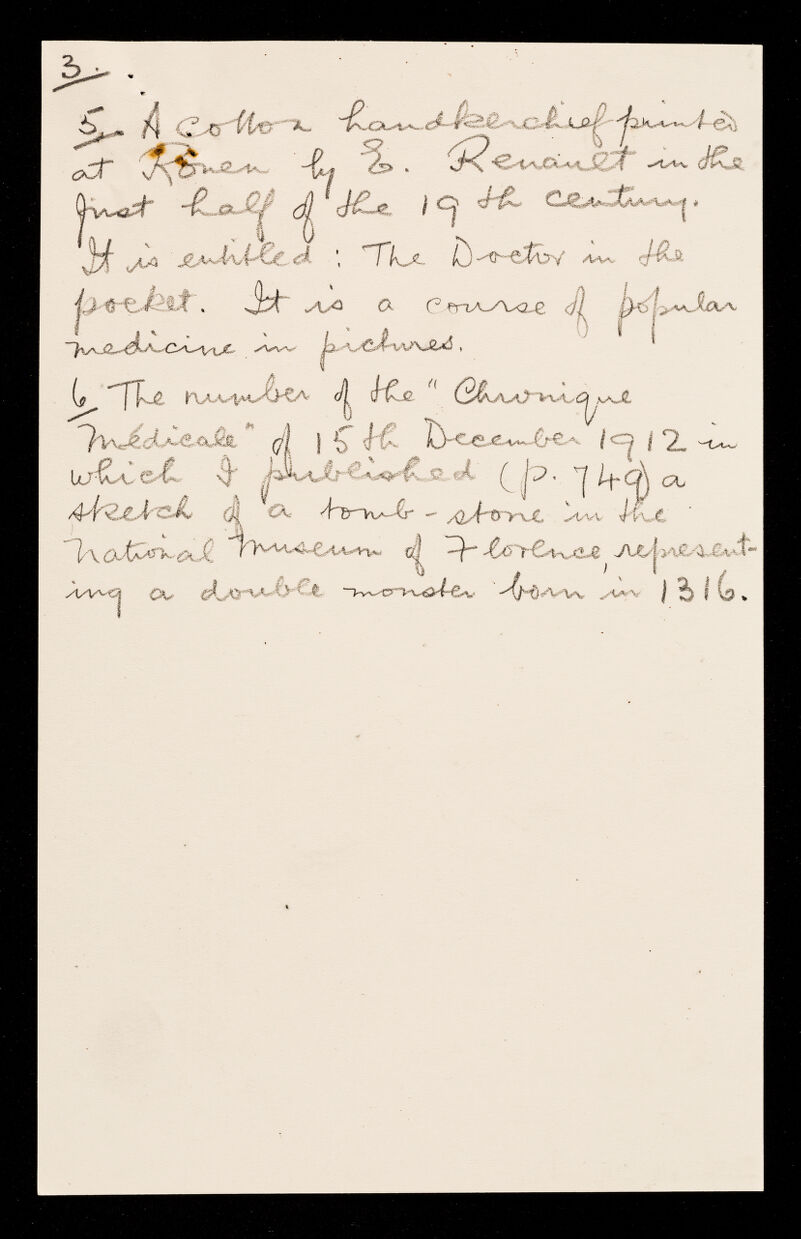 3.
5. A cotton handkerchief printed
at Rouen by E. Renault in the
first half of the 19th century.
It is entitled : The Doctor in the
pocket. It is a course of popular
medicine in pictures.
6 The number of the "Chronique
Médicale" of 15th December 1912 in
which I published (p. 749) a
sketch of a tomb-stone in the
National Museum of Florence, represent-
ing a double monster born in 1316.